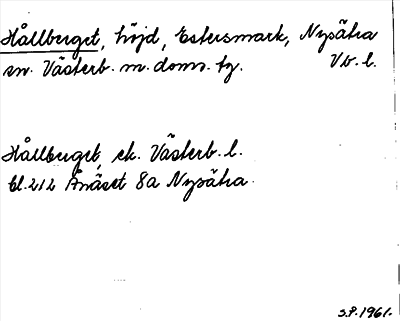 Hållberget, höjd, Estersmark, Nysätra
sn. Västerb. m. doms. tg. Vb. l.
Hållberget, ek. Västerb. l.
bl. 212 Ånäset 8a Nysätra.
S.P. 1961.